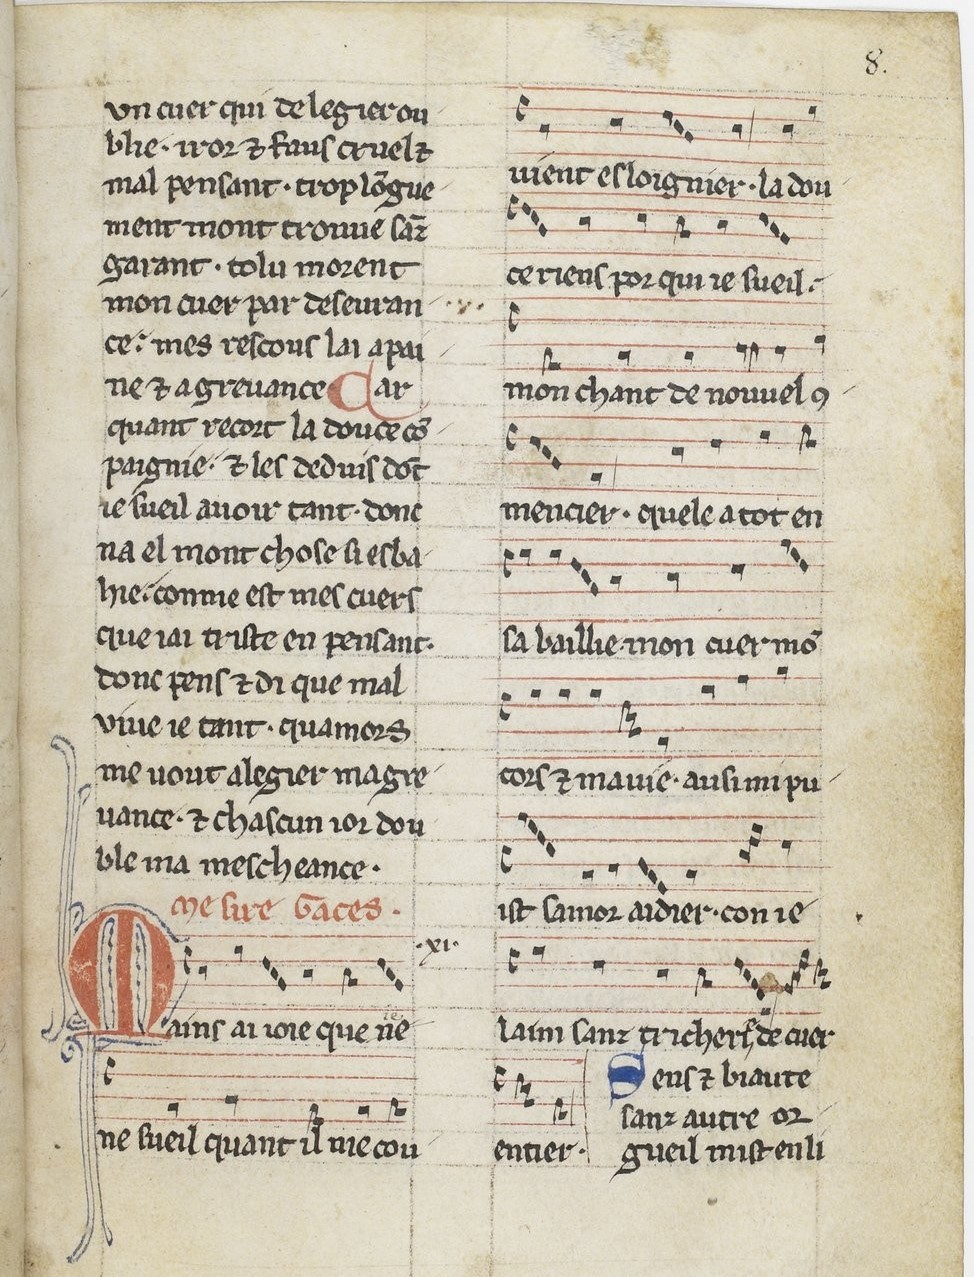 8.
vn cuer qui de legier ou
blie · iror ⁊ faus cruel ⁊
mal pensant · trop lōgue
ment mont trouue sāz
garant · tolu morent
mon cuer par deseuran
ce: mes rescous lai a pai
ne ⁊ a greuance Car
quant recort la douce cō
paignie · ⁊ les deduis dōt
ie sueil auoir tant · donc
na el mont chose si esba
hie: comme est mes cuers
que iai triste en pensant ·
donc pens ⁊ di que mal
viue ie tant · quamors
me uout alegier ma gre
uance · ⁊ chascun ior dou
ble ma mescheance ·
Me sire Gaces ·
·xi·
Mains ai ioie que ie ne
ne sueil quant il me cou
uient esloignier · la dou
ce riens por qui ie sueil ·
mon chant de nouuel ꝯ
mencier · quele a tot en
sa baillie · mon cuer mō
cors ⁊ ma uie · ausi mi pu
ist samor aidier · con ie
laim sanz tricherie de cuer
entier ·
Sens ⁊ biaute
sanz autre or
gueil mist en li